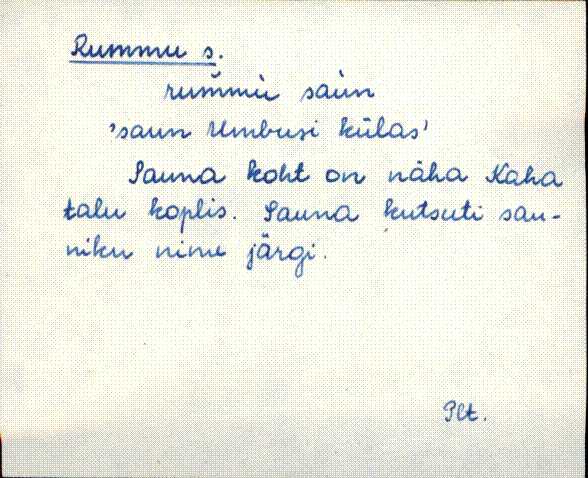 Rummu s.
rum̆mù saùn
'saun Umbusi külas'
Sauna koht on näha Kaha
talu koplis. Sauna kutsuti sau-
niku nime järgi.
Plt.